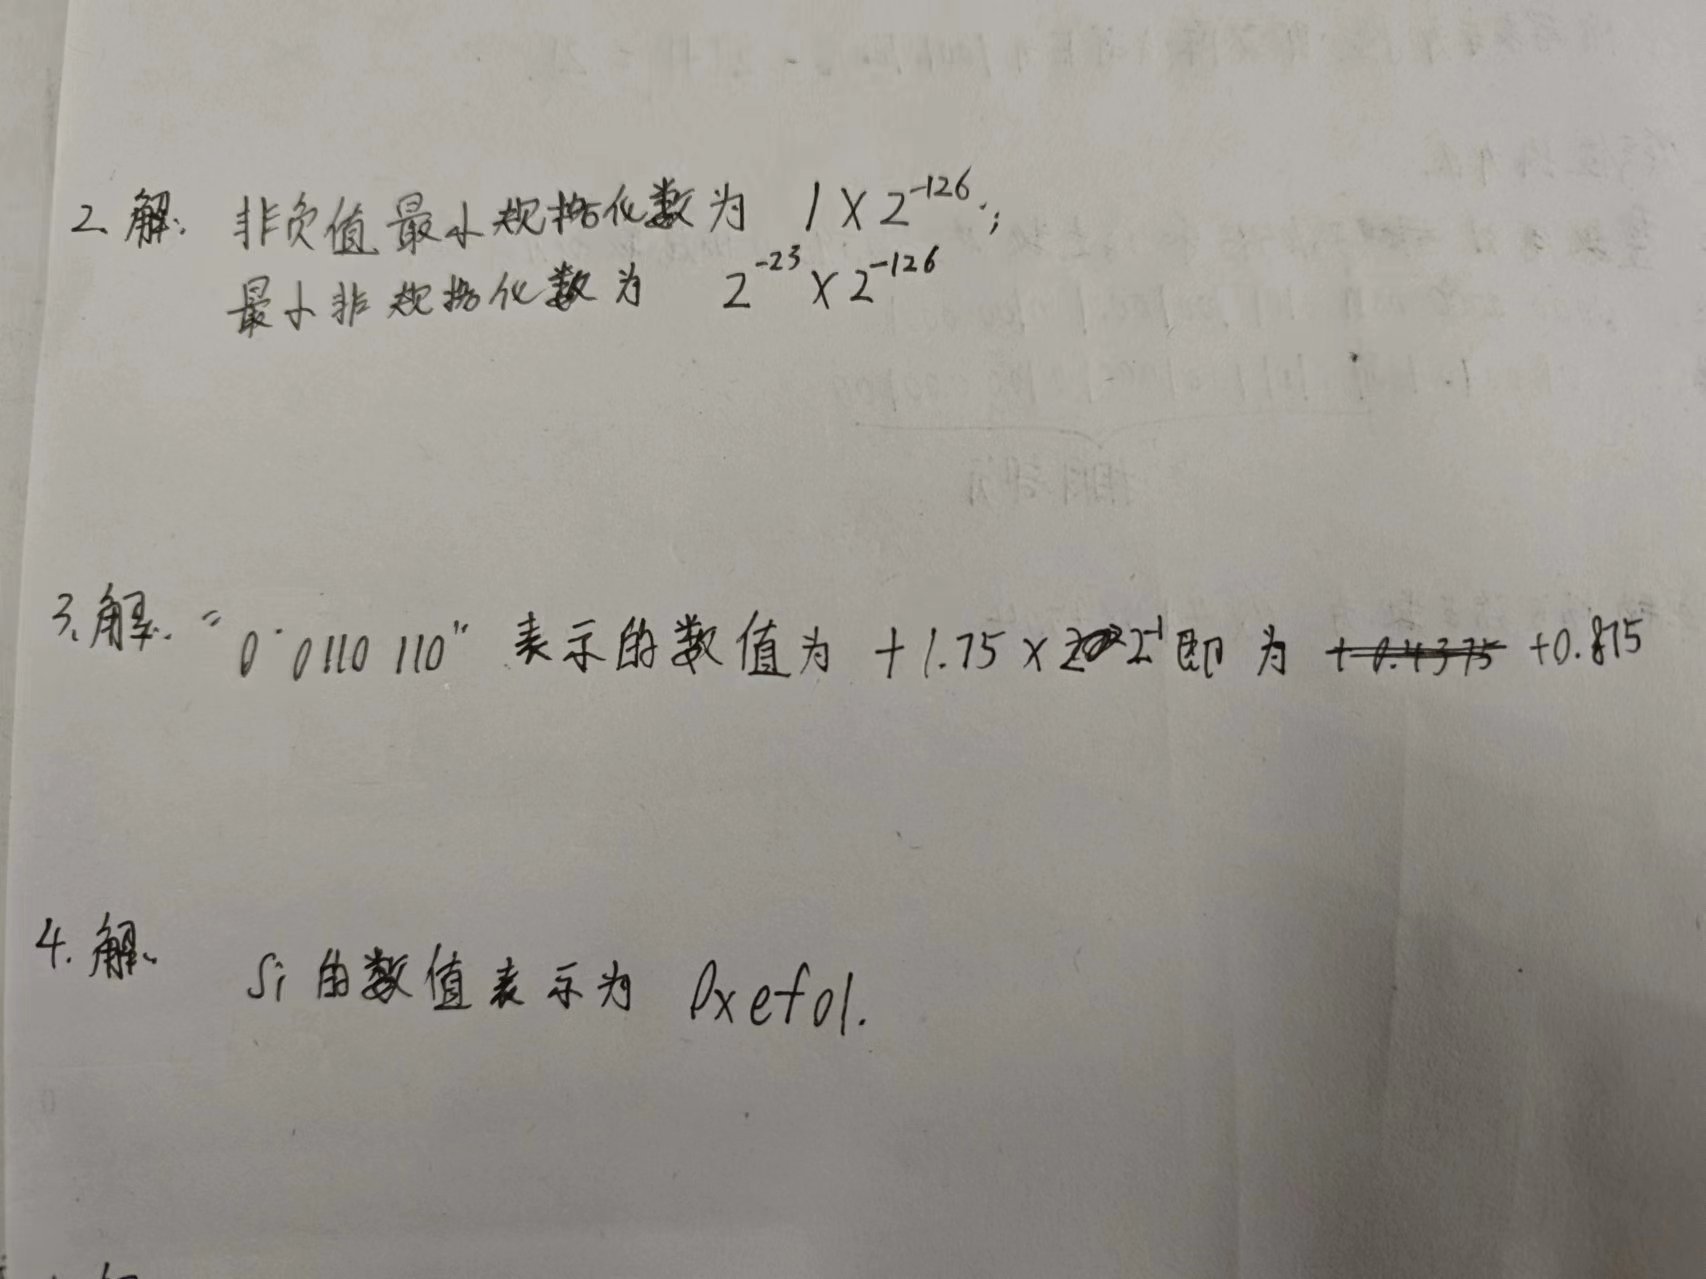 2. 解: 非负值最小规格化数为 1×2^-126;
最小非规格化数为 2^-23×2^-126
3. 解: "0 0110 110" 表示的数值为 +1.75×2^-1 即为 +0.4375 +0.875
4. 解:
Si 的数值表示为 0xef01.